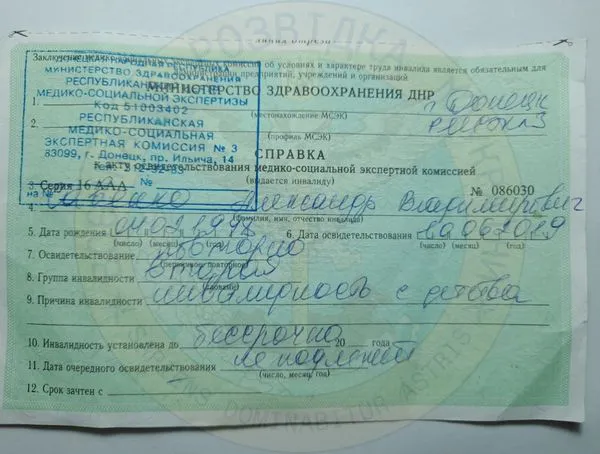 линия отреза
Заключение медико- комиссии об условиях и характере труда инвалида является обязательным для
предприятий, учреждений и организаций
МИНИСТЕРСТВО ЗДРАВООХРАНЕНИЯ ДНР
НАРОДНАЯ РЕСПУБЛИКА
МИНИСТЕРСТВО ЗДРАВООХРАНЕНИЯ
РЕСПУБЛИКАНСКИЙ
МЕДИКО-СОЦИАЛЬНОЙ ЭКСПЕРТИЗЫ
Код 51003402
РЕСПУБЛИКАНСКАЯ
МЕДИКО-СОЦИАЛЬНАЯ
ЭКСПЕРТНАЯ КОМИССИЯ № 3
83099, г. Донецк, пр. Ильича, 14
на № №
1. г. Донецк
(местонахождение МСЭК)
2.
(профиль МСЭК)
СПРАВКА
к акту освидетельствования медико-социальной экспертной комиссией
(выдается инвалиду)
3. Серия 16 ААА № 086030
4. Александр Владимирович
(фамилия, имя, отчество инвалида)
5. Дата рождения 6. Дата освидетельствования
(число) (месяц) (год) (число) (месяц) (год)
7. Освидетельствование повторно
(первичное, повторное)
8. Группа инвалидности вторая
(словами)
9. Причина инвалидности инвалидность с детства
10. Инвалидность установлена до бессрочно 20 года
11. Дата очередного освидетельствования не подлежит
(число, месяц, год)
12. Срок зачтен с
РОЗВІДКА
SAPIENS DOMINABITUR ASTRIS